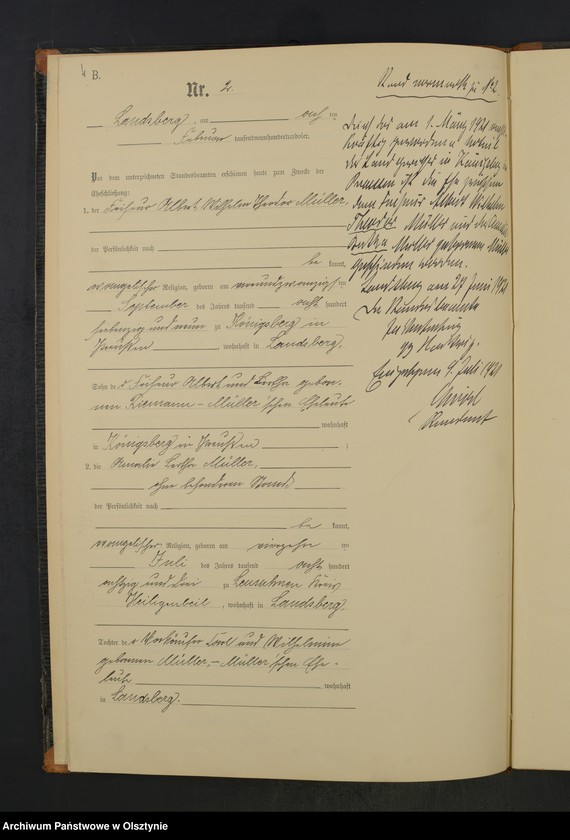 B.
Nr. 2.
Landsberg, am acht ten
Februar tausendneunhundert
Vor dem unterzeichneten Standesbeamten erschienen heute zum Zwecke der
Eheschließung:
1. der Friseur Albert Wilhelm Theodor Müller,
der Persönlichkeit nach
be kannt,
evangelischer Religion, geboren am neunundzwanzigsten
September des Jahres tausend acht hundert
siebenzig und neun zu Königsberg in
Preußen, wohnhaft in Landsberg.
Sohn der Friseur Albert und Bertha gebore-
nen Riemann-Müller'schen Eheleute
wohnhaft
in Königsberg in Preußen;
2. die Amalie Bertha Müller,
ohne besonderen Stand,
der Persönlichkeit nach
be kannt,
evangelischer Religion, geboren am vierzehn ten
Juli des Jahres tausend acht hundert
achtzig und drei zu Kreis
Heiligenbeil, wohnhaft in Landsberg
Tochter der Carl und Wilhelmine
geborenen Müller,-Müller'schen Ehe-
leute
wohnhaft
in Landsberg.
Rand zu № 2
Durch das am 1. März 1921 rechts-
kräftig gewordene Urteil
des Landgerichts in Königsberg in
Preußen ist die Ehe zwischen
dem Friseur Albert Wilhelm
Theodor Müller und der Amalie
Bertha Müller geborenen Müller
geschieden worden.
Landsberg am 24 Juni 1921
Der Standesbeamte
In Vertretung
Eingetragen 4. Juli 1921
Archiwum Państwowe w Olsztynie